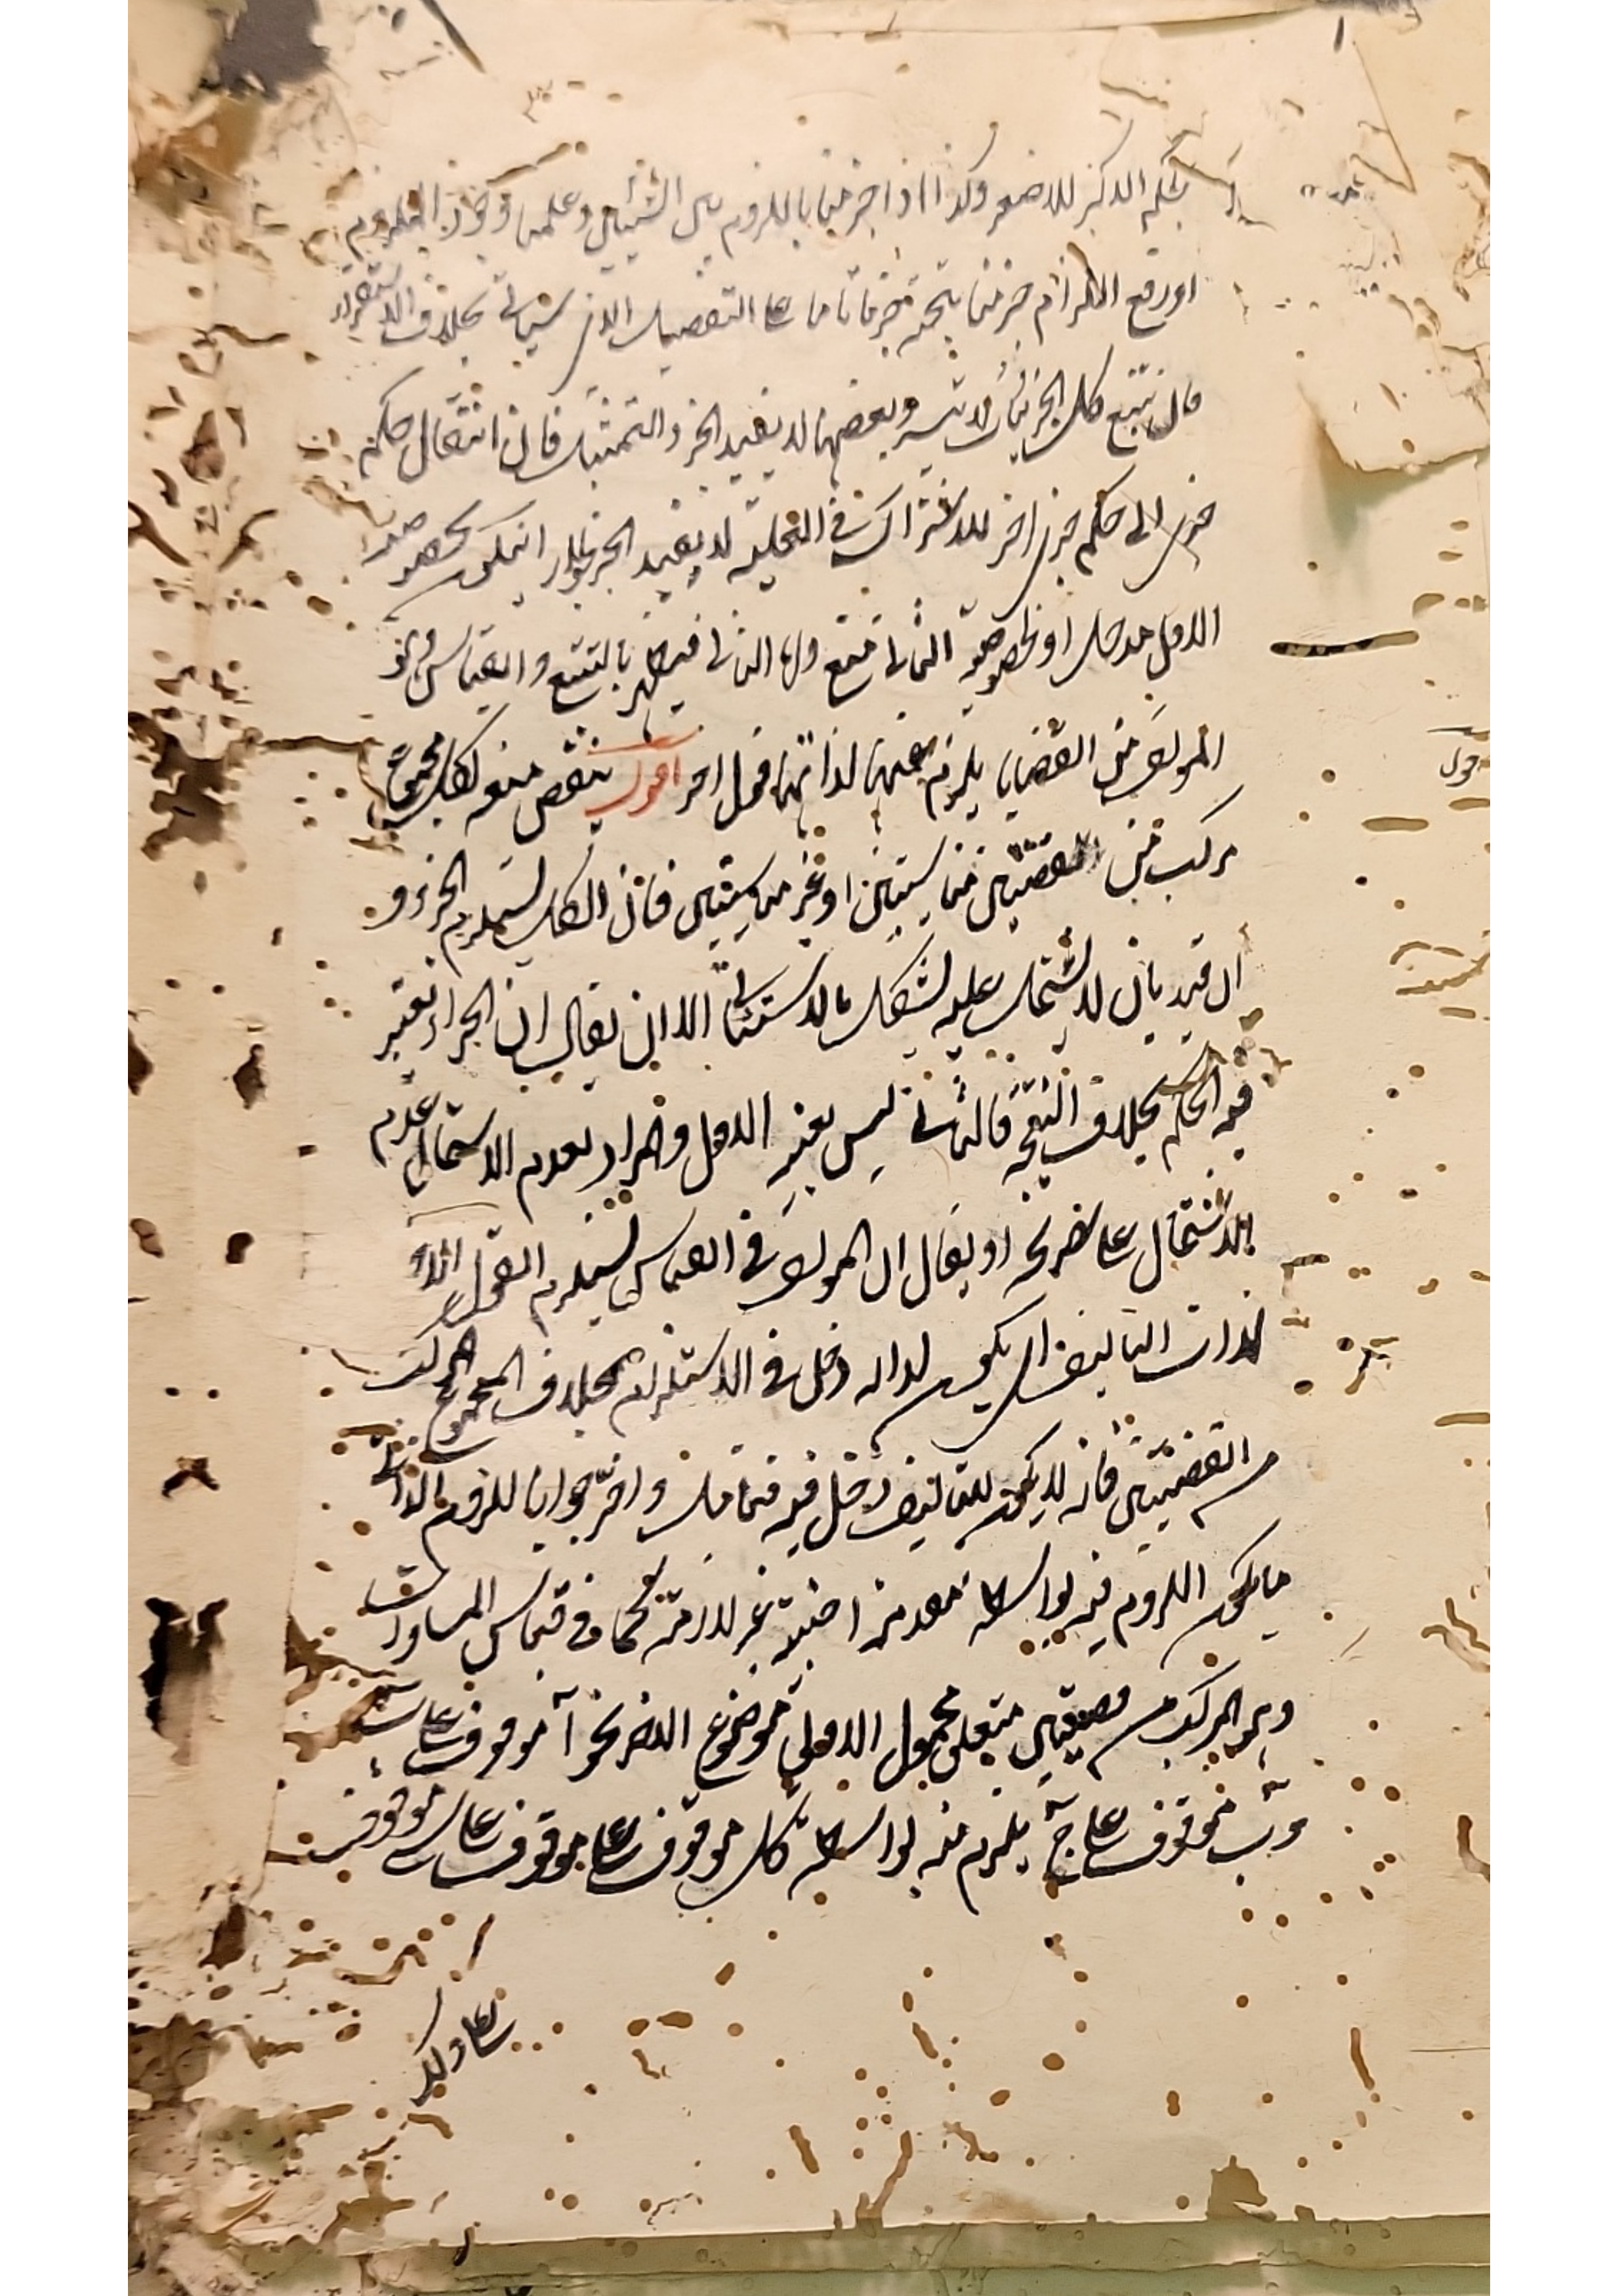 بحكم الاكبر للاصغر وكذا اذا جزمنا باللزوم بين الشيئين وعلمنا وجود الملزوم
او رفع اللازم جزمنا بالنتيجة جزما تاما على التفصيل الذى سياتى بخلاف الاستقراء
فان تتبع كل الجزئيات لا يتيسر وبعضها لا يفيد الجزم والتمثيل فان انتقال حكم
جزئى الى حكم جزئى اخر للاشتراك فى العلية لا يفيد الجزم لجواز ان يكون لخصوصية
الاول مدخل او لخصوصية الثانى منع واما الثانى فيظهر بالتتبع والقياس هو
المؤلف من القضايا يلزم عنها لذاتها قول اخر اقول ينتقض منعه لكل مجموع
مركب من القضيتين متناسبتين او غير متناسبتين فان الكل يستلزم الجزء و
ان قيد بان لا يشتمل عليه يشكل بالاستثنائى الا ان يقال ان الجزء لا يعتبر
فيه الحكم بخلاف النتيجة فالثانى ليس بعين الاول والمراد بعدم الاشتمال عدم
الاشتمال على صريحه او يقال ان المؤلف فى القياس يستلزم القول الآخر
لذات التاليف اى يكون له دخل فى الاستلزام بخلاف المجموع المركب
من القضيتين فانه لا يكون للتاليف دخل فيه فتامل واحترزوا باللزوم الذاتى
ما يكون اللزوم فيه بواسطة مقدمة اجنبية غير لازمة كما فى قياس المساوات
وهو المركب من قضيتين متعلق محمول الاولى موضوع الاخرى نحو آ موقوف على ب
وب موقوف على ج يلزم منه بواسطة كل موقوف على موقوف على شئ موقوف
على ذلك